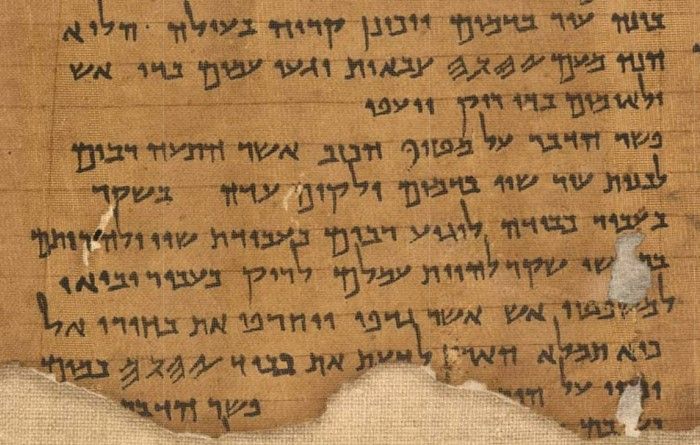 בונה עיר בדמים ויכונן קריה בעולה הלוא
הנה מעם 𐤉𐤄𐤅𐤄 צבאות יגעו עמים בדי אש
ולאומים בדי ריק ייעפו
פשר הדבר על מטיף הכזב אשר התעה רבים
לבנות עיר שוו בדמים ולקים עדה בשקר
בעבור כבודה לוגיע רבים בעבודת שוו ולהרותם
שקר להיות עמלם לריק בעבור יבואו
למשפטי אש אשר גדפו ויחרפו את בחירי אל
כיא תמלא הארץ לדעת את כבוד 𐤉𐤄𐤅𐤄 כמים
על פשר הדבר